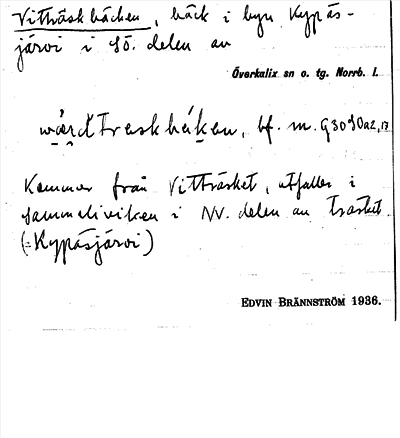 Vitträskbäcken, bäck i byn Kypäs-
järvi i SÖ. delen av
Överkalix sn o. tg. Norrb. l.
bf. m.
Kommer från Vitträsket, utfaller i
Sammeliviken i NV. delen av träsket
(=Kypäsjärvi)
EDVIN BRÄNNSTRÖM 1936.